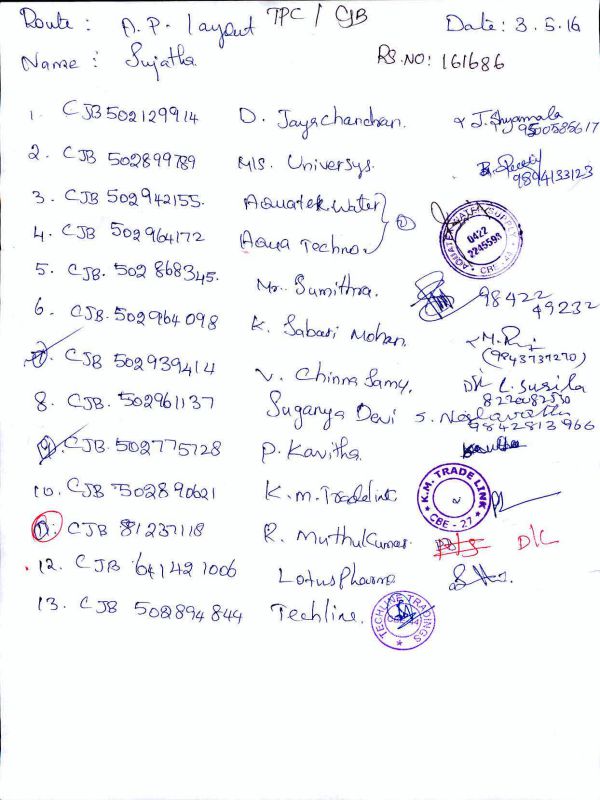 Route : A. P. layout TPC / CJB Date: 3.5.16
Name : Sujatha RS.NO: 161686
1. CJB 502129914 D. Jayachandran. J. Shyamala
9500585617
2. CJB 502899789 M/s. Universys.
9894133123
3. CJB 502942155. Aquatek water
4. CJB 502964172 Aqua Techno.
AQUATEK WATER SUPPLY
0422
2245593
CBE-41
5. CJB. 502868345. Mr. Sumithra. 98422
49232
6. CJB. 502964098 K. Sabari Mohan.
(9843737270)
7. CJB 502939414 V. Chinna Samy. D/L L. Susila
8220082550
8. CJB. 502961137 Suganya Devi S.
9842813966
9. CJB. 502775728 P. Kavitha. Kavitha
10. CJB 502890621 K.M. Tradelink
K.M. TRADE LINK
CBE-27
11. CJB 81237118 R. Muthukumar. D/L
12. CJB 641421006 Lotus Pharma
13. CJB 502894844 Techline.
TECHLINE TRADINGS